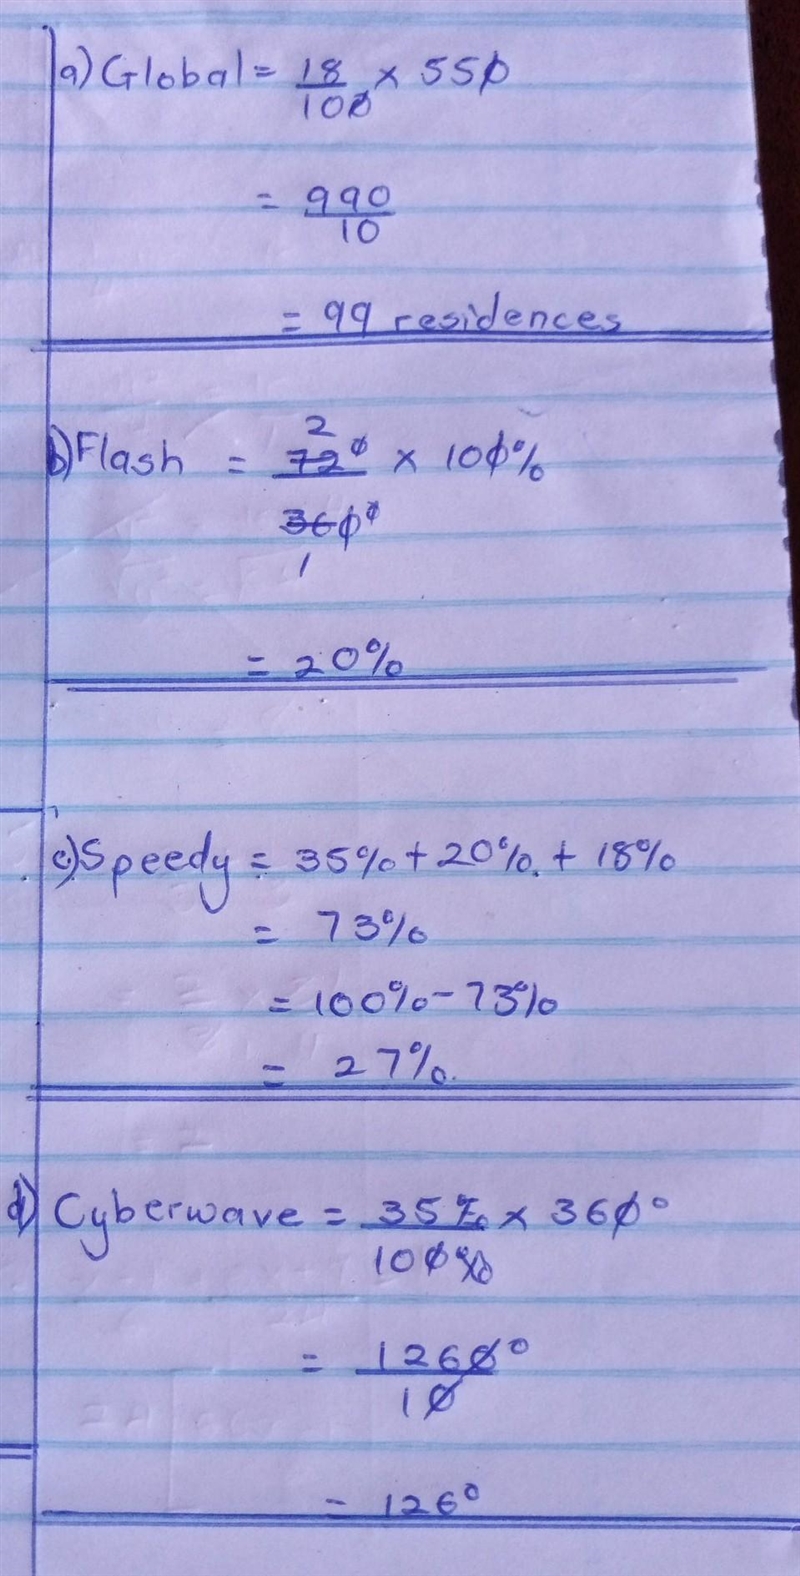 a) Global = 18/100 × 550
= 990/10
= 99 residences
b) Flash = 72°/360° × 100%
2
1
= 20%
c) Speedy = 35% + 20% + 18%
= 73%
= 100% - 73%
= 27%.
d) Cyberwave = 35%/100% × 360°
= 1260°/10
= 126°